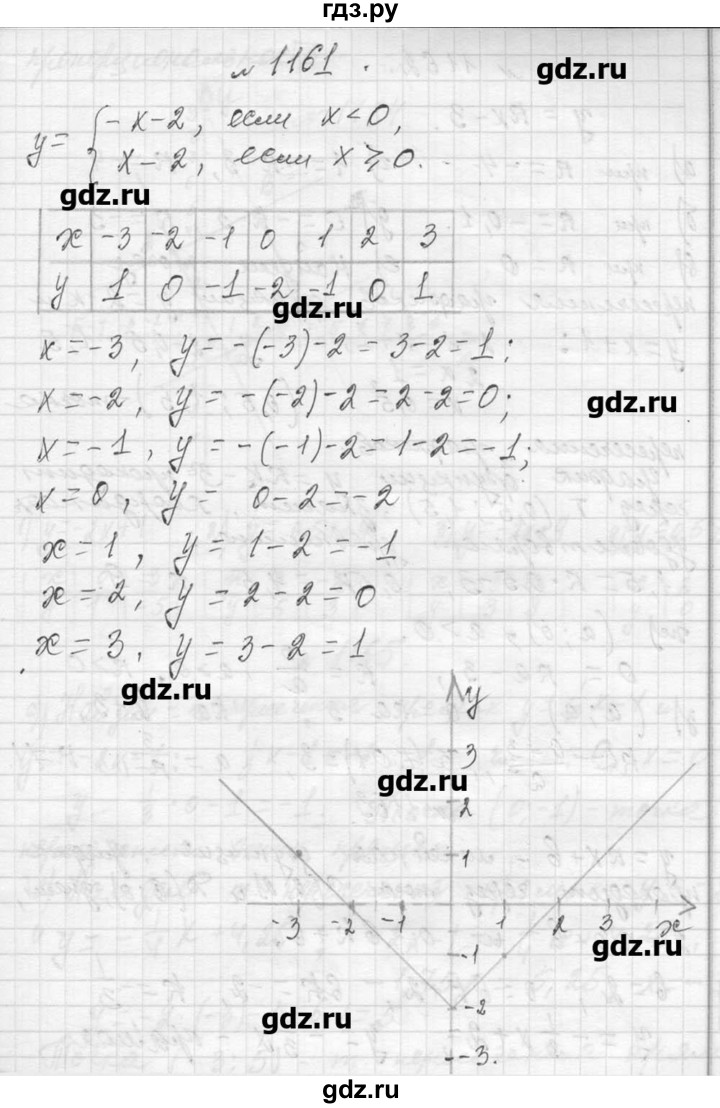 гдз.ру
№ 1161.
gdz.ru
y = { -x-2, если x<0,
x-2, если x⩾0.
gdz.ru
x -3 -2 -1 0 1 2 3
y 1 0 -1 -2 -1 0 1
gdz.ru
x=-3, y=-(-3)-2=3-2=1;
x=-2, y=-(-2)-2=2-2=0;
gdz.ru
x=-1, y=-(-1)-2=1-2=-1;
x=0, y= 0-2=-2
x=1, y=1-2=-1
x=2, y=2-2=0
x=3, y=3-2=1
gdz.ru
y
3
gdz.ru
2
1
-3 -2 -1 1 2 3 x
gdz.ru
-1
-2
gdz.ru
-3.
gdz.ru